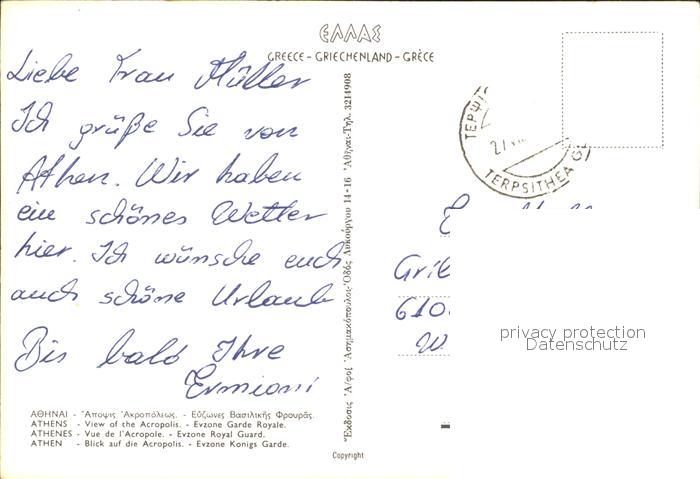 ΕΛΛΑΣ
GREECE - GRIECHENLAND - GRÈCE
Liebe Frau Müller
Ich grüße Sie von
Athen. Wir haben
ein schönes Wetter
hier. Ich wünsche euch
auch schöne Urlaub
Bis bald Ihre
Ermioni
ΑΘΗΝΑΙ - Ἄποψις Ἀκροπόλεως. - Εὔζωνες Βασιλικῆς Φρουρᾶς.
ATHENS - View of the Acropolis. - Evzone Garde Royale.
ATHENES - Vue de l'Acropole. - Evzone Royal Guard.
ATHEN - Blick auf die Acropolis. - Evzone Konigs Garde.
Ἔκδοσις Ἀ/φοὶ Ἀσημακόπουλοι-Ὁδὸς Λυκούργου 14-16 Ἀθῆναι-Τηλ. 3214908
Copyright
ΤΕΡΨΙ
27
TERPSITHEA
Grie
610
W.
privacy protection
Datenschutz